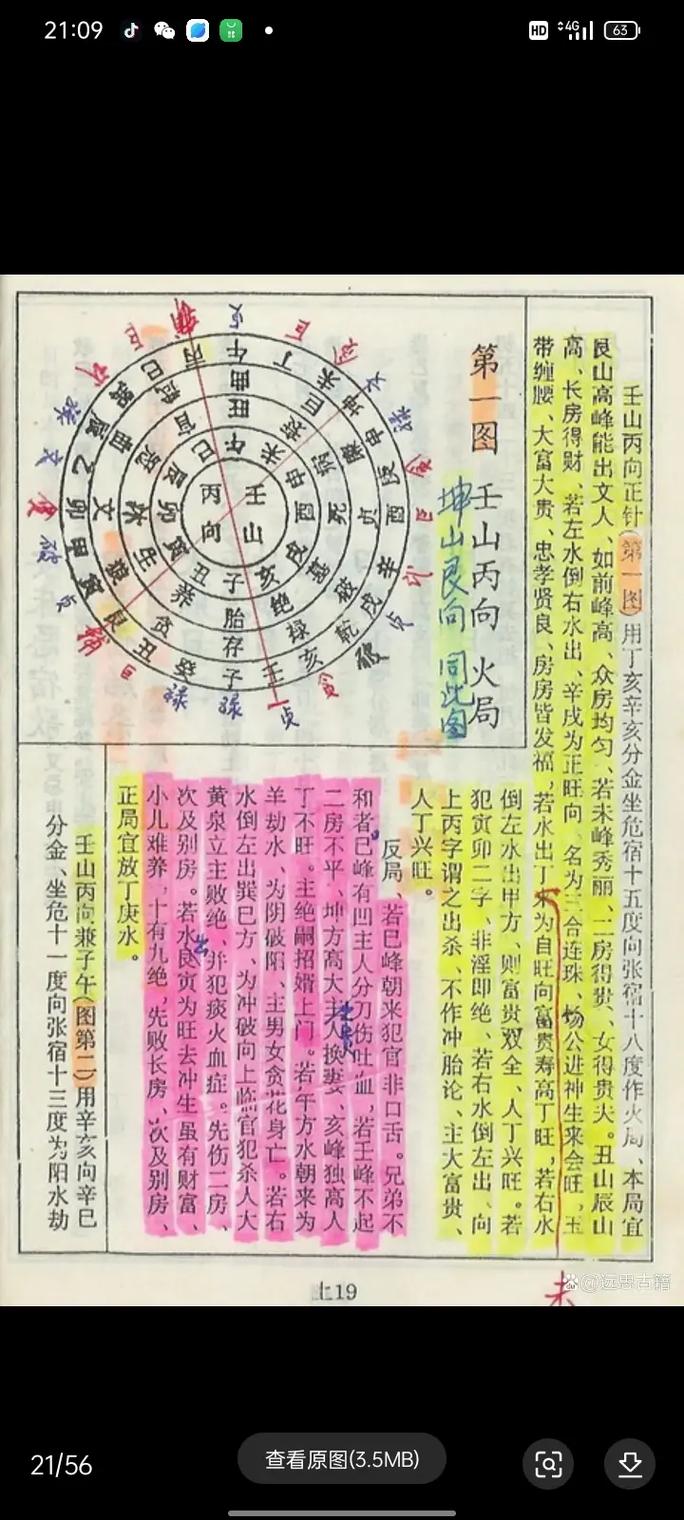 21:09
HD
4G
63
壬山丙向正针(第一图)用丁亥辛亥分金坐危宿十五度向张宿十八度作火局、本局宜
艮山高峰能出文人、如前峰高、众房均匀、若未峰秀丽、二房得贵、女得贵夫。丑山辰山
高、长房得财、若左水倒右水出、辛戌为正旺向、名为三合连珠、杨公进神生来会旺、玉
带缠腰、大富大贵、忠孝贤良、房房皆发福、若水出丁未为自旺向富贵寿高丁旺，若右水
倒左水出甲方、则富贵双全、人丁兴旺。若
犯寅卯二字、非淫即绝、若右水倒左出、向
上丙字谓之出杀、不作冲胎论、主大富贵、
人丁兴旺。
反局、若巳峰朝来犯官非口舌。兄弟不
和者、巳峰有凹主人分刀伤吐血，若壬峰不起
二房不平、坤方高大主人换妻、亥峰独高人
丁不旺。主绝嗣招婿上门。若午方水朝来为
羊劫水、为阴破阳、主男女贪花身亡。若右
水倒左出巽巳方、为冲破向上临官犯杀人大
黄泉立主败绝、并犯痰火血症。先伤二房、
次及别房。若水艮寅为旺去冲生虽有财富、
小儿难养、十有九绝，先败长房、次及别房、
正局宜放丁庚水。
壬山丙向兼子午(图第二)用辛亥向辛巳
分金、坐危十一度向张宿十三度为阳水劫
第一图 壬山丙向 火局
坤山艮向 同此图
壬山
丙向
子 亥 戌 酉 申 未 午 巳 卯 寅 丑
胎 绝 墓 死 病 衰 旺 官 冠 沐 生 养
存 禄 破 贞 廉 巨 曲 武 曲 文 狼 贪
子 壬 亥 乾 戌 辛 酉 庚 申 坤 未 丁 午 丙 巳 巽 辰 乙 卯 甲 寅 艮 丑 癸
未
上19
@远思古籍
21/56
查看原图(3.5MB)